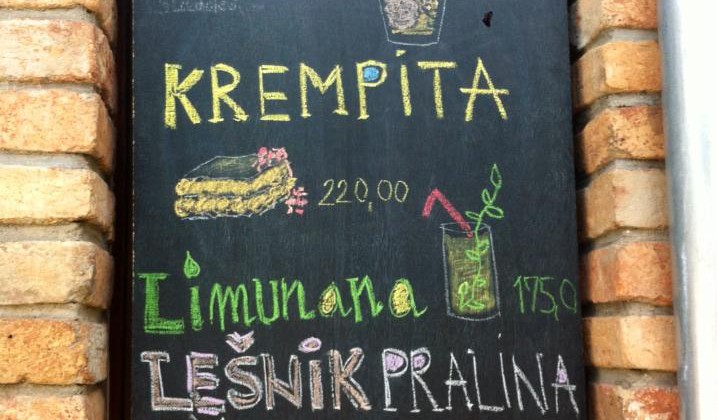 KREMPITA
220,00
Limunana 175,0
LEŠNIK PRALINA